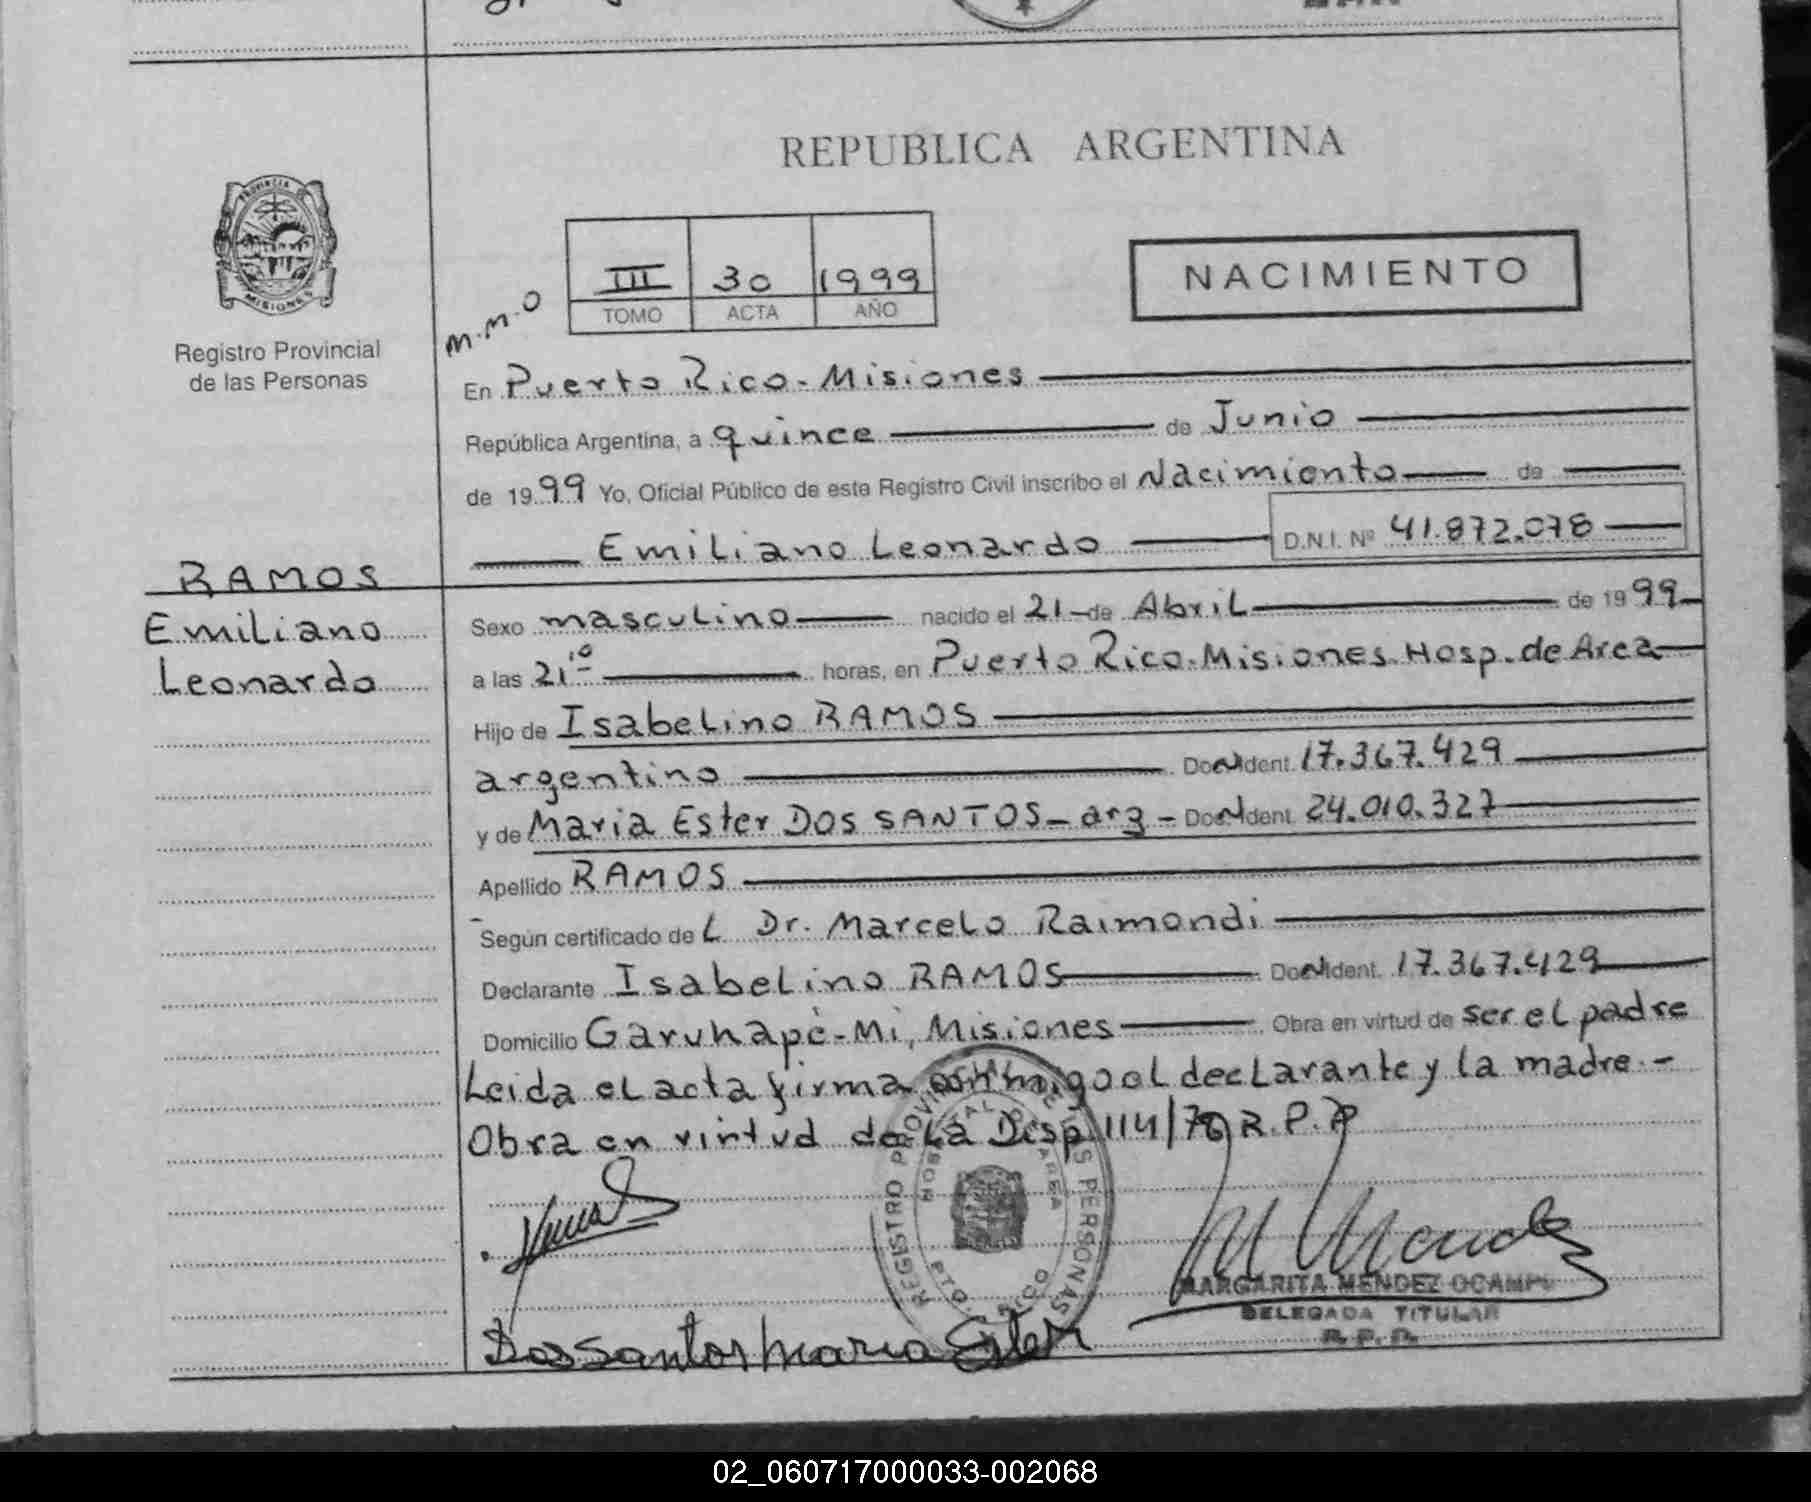 REPUBLICA ARGENTINA
PROVINCIA
MISIONES
Registro Provincial
de las Personas
III 30 1999
TOMO ACTA AÑO
NACIMIENTO
M.M.O
En Puerto Rico - Misiones
República Argentina, a quince de Junio
de 1999 Yo, Oficial Público de este Registro Civil inscribo el Nacimiento de
Emiliano Leonardo D.N.I. Nº 41.872.078
RAMOS
Emiliano
Leonardo
Sexo masculino nacido el 21 de Abril de 1999
a las 21 10 horas, en Puerto Rico. Misiones. Hosp. de Area
Hijo de Isabelino RAMOS
argentino Doc. Ident. 17.367.429
y de Maria Ester DOS SANTOS - arg - Doc. Ident. 24.010.327
Apellido RAMOS
Según certificado del Dr. Marcelo Raimondi
Declarante Isabelino RAMOS Doc. Ident. 17.367.429
Domicilio Garuhapé-Mi, Misiones Obra en virtud de ser el padre
Leida el acta firma conmigo el declarante y la madre.-
Obra en virtud de la Disp. 114/76 R.P.P
REGISTRO PROVINCIAL DE LAS PERSONAS
HOSPITAL DE AREA
PTO. RICO
MARGARITA MENDEZ OCAMPO
DELEGADA TITULAR
R.P.P.
Dos Santos Maria Ester
02_060717000033-002068